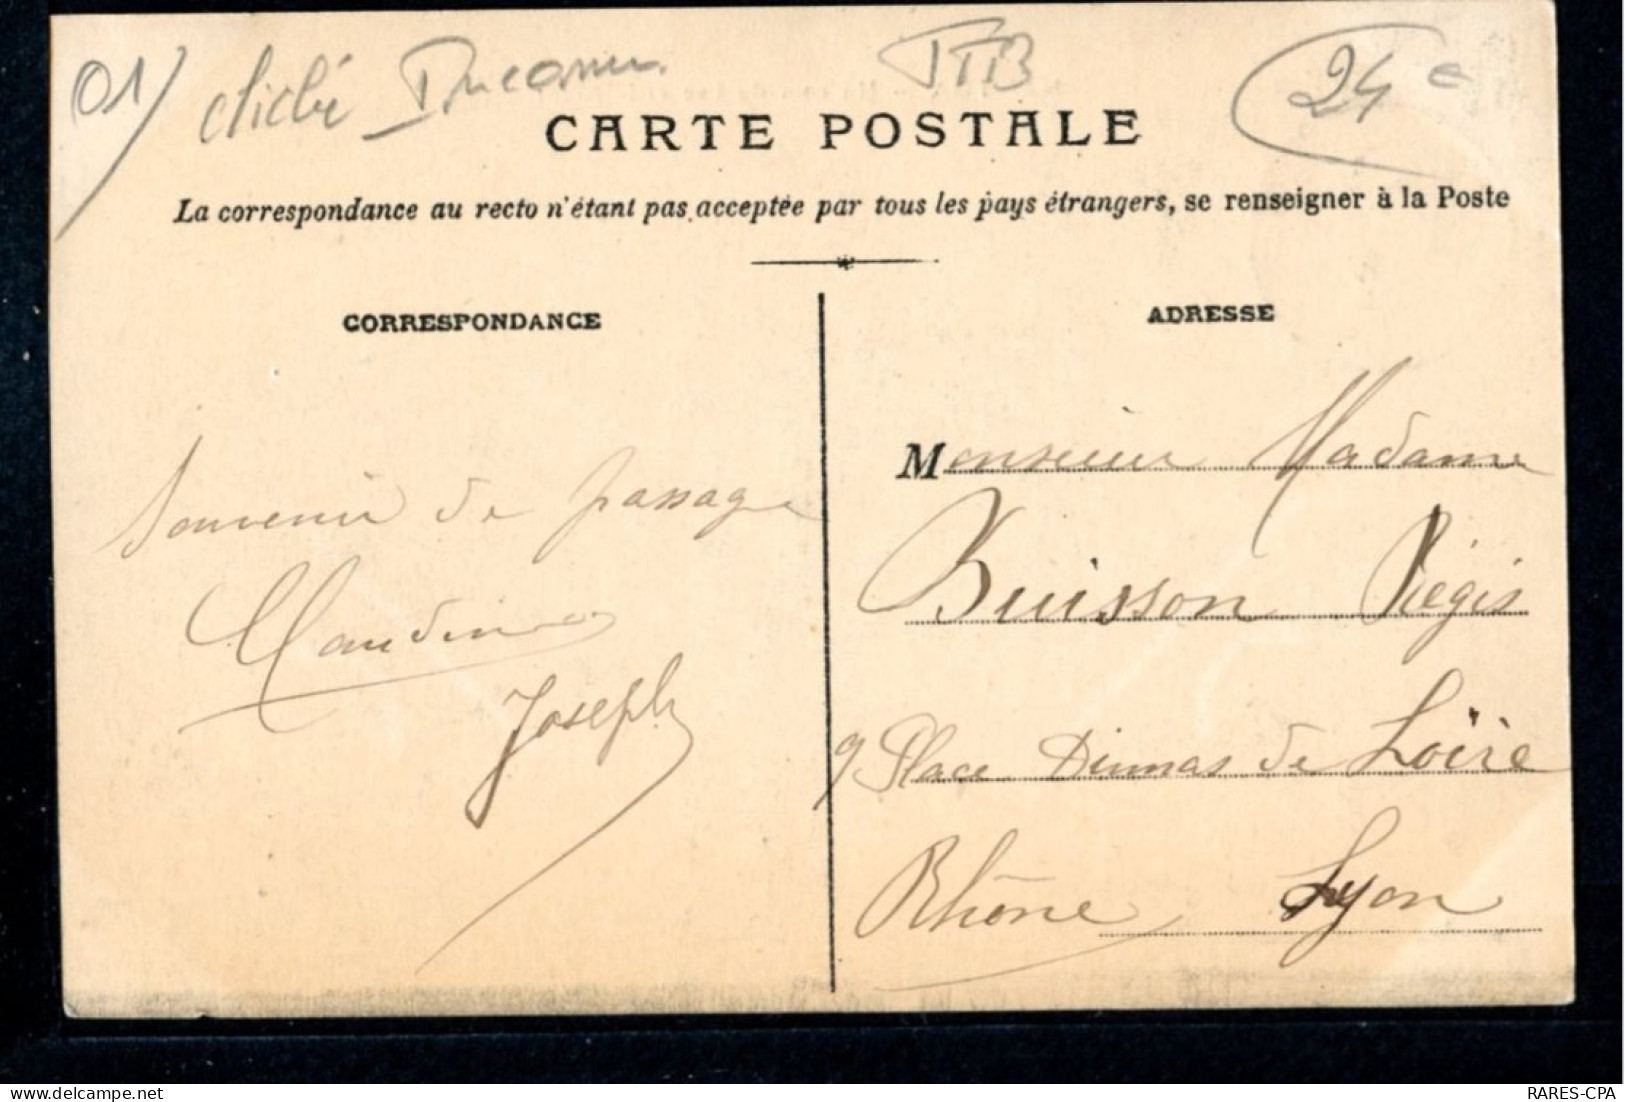 01/ cliché TTB 24 e
CARTE POSTALE
La correspondance au recto n'étant pas acceptée par tous les pays étrangers, se renseigner à la Poste
CORRESPONDANCE
Souvenir de passage
Claudine
Joseph
ADRESSE
Monsieur Madame
Buisson Régis
9 Place Dumas de Loire
Rhône Lyon
delcampe.net
RARES-CPA